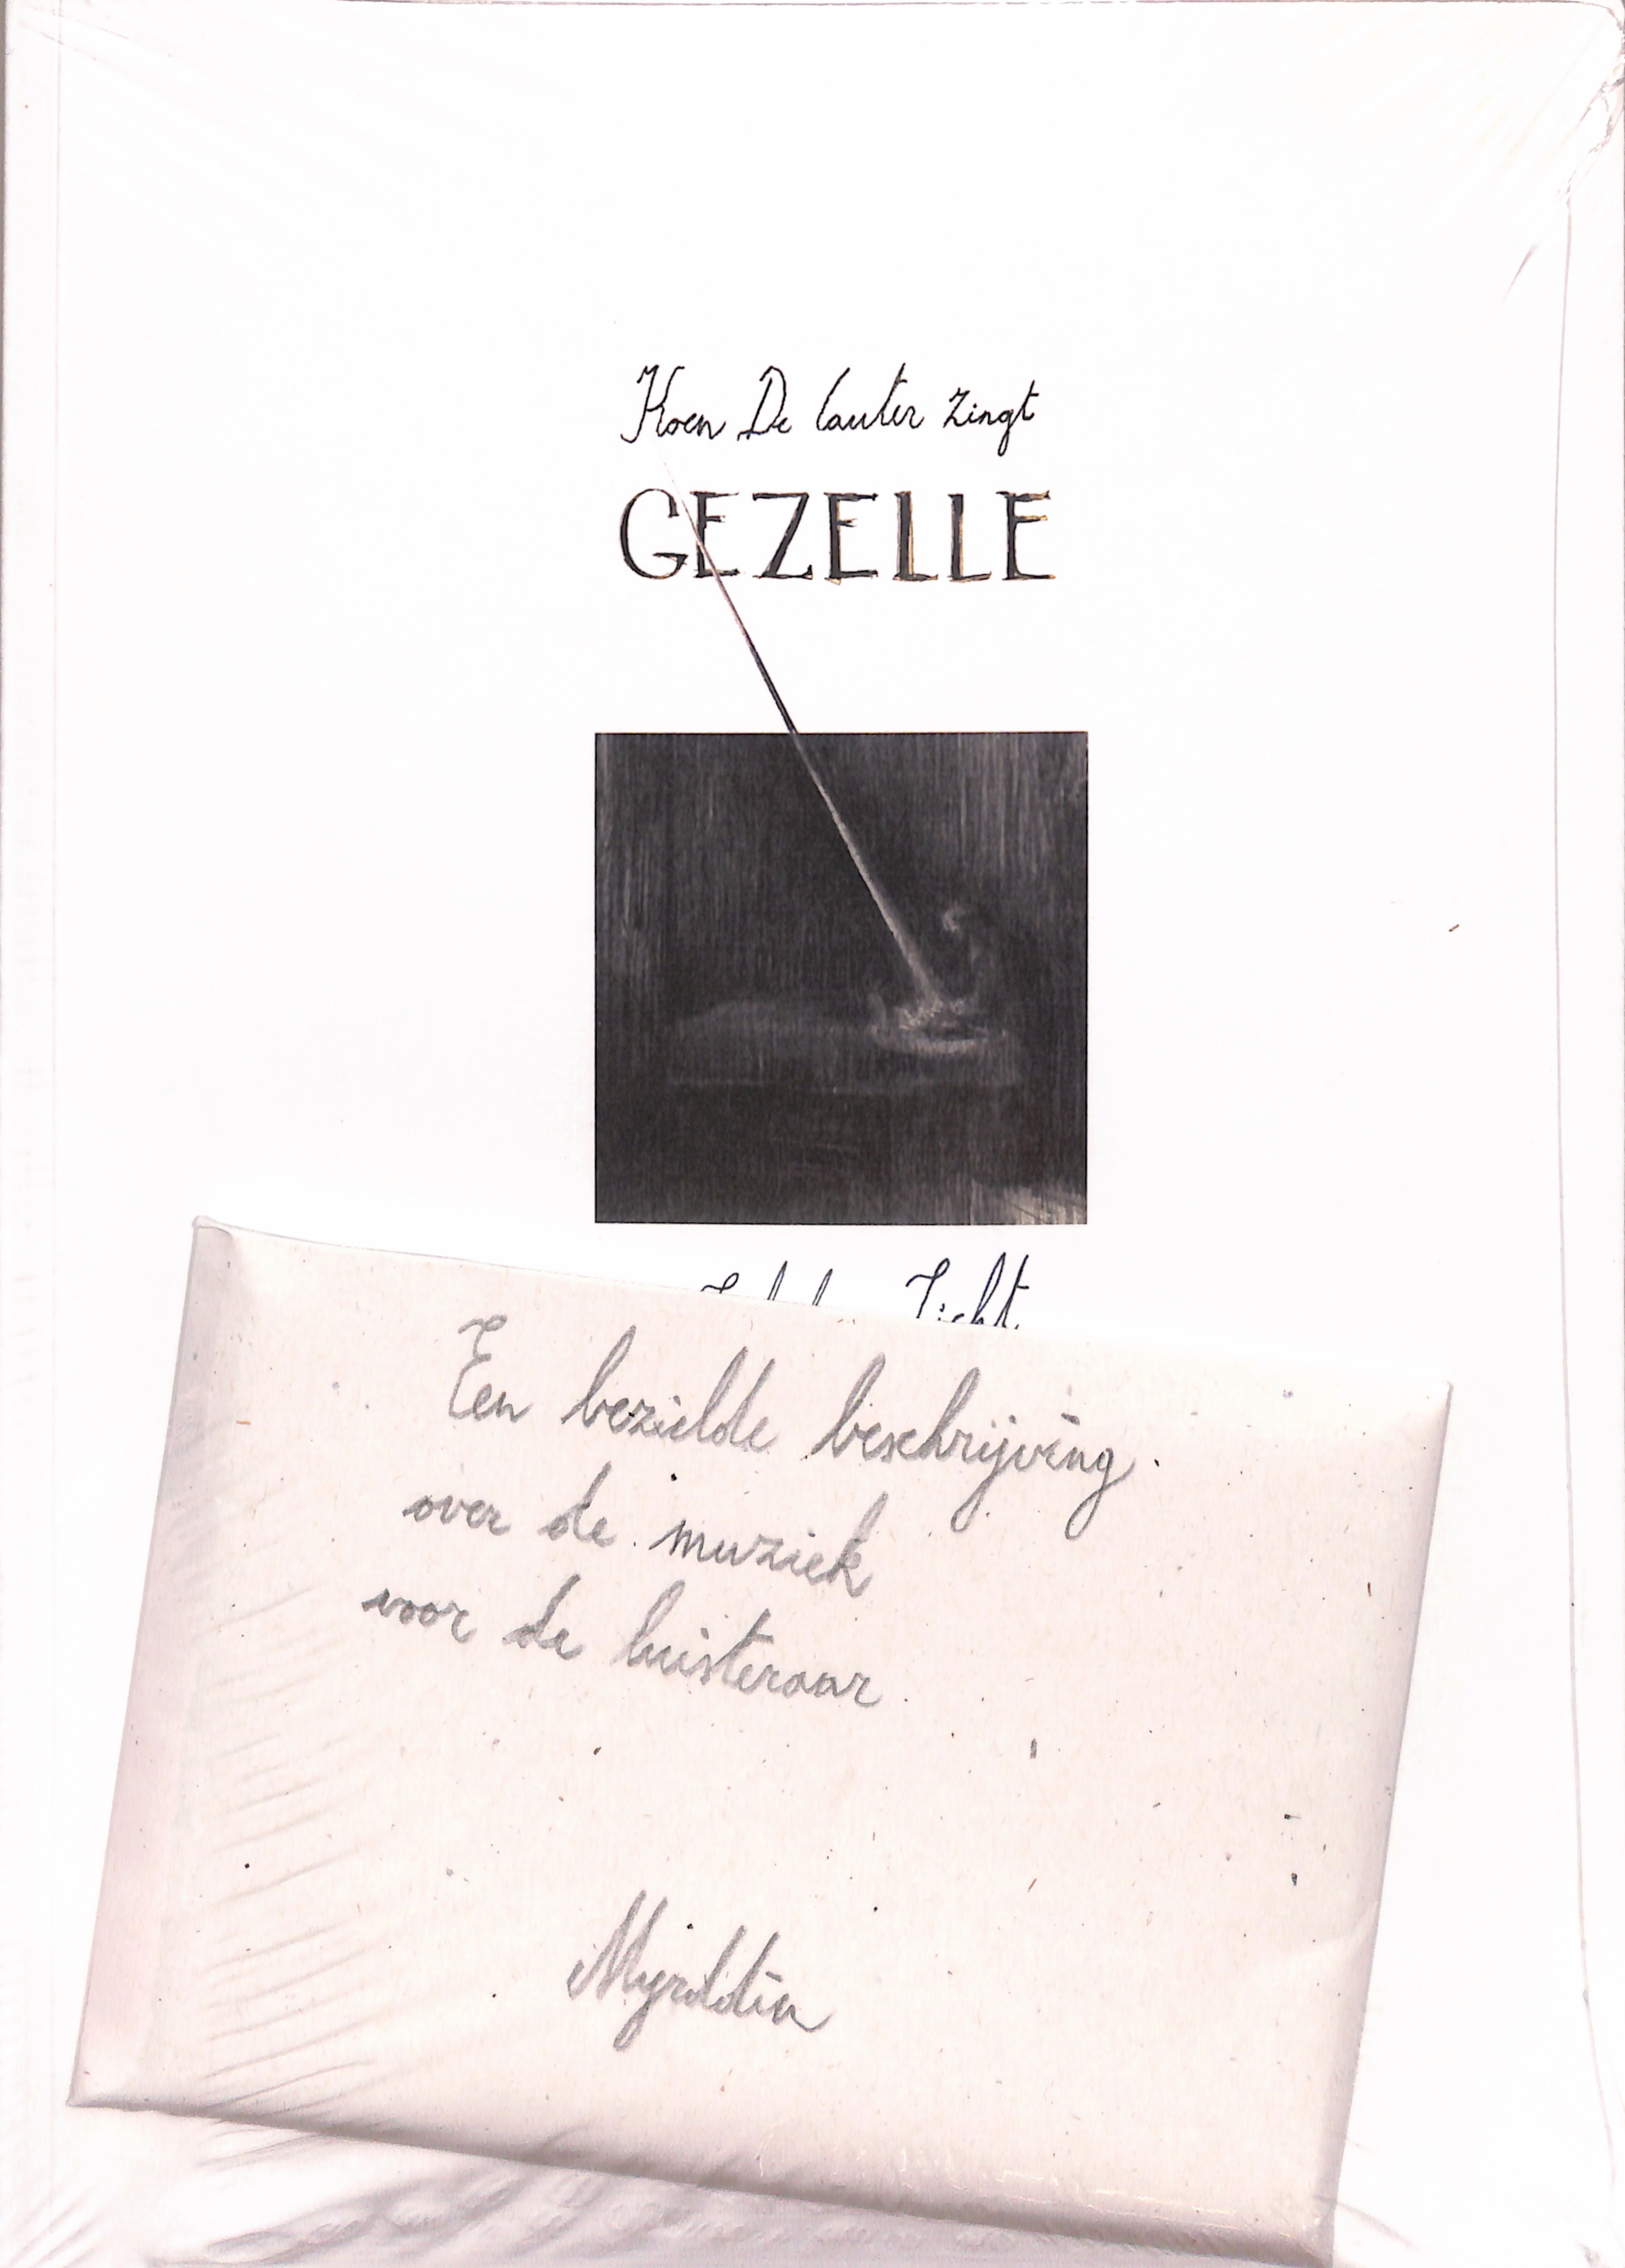 Koen De Cauter zingt
GEZELLE
Licht
Een bezielde beschrijving
over de muziek
voor de luisteraar
Myrddin